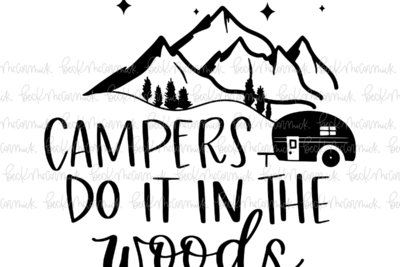 CAMPERS
DO IT IN THE
woods